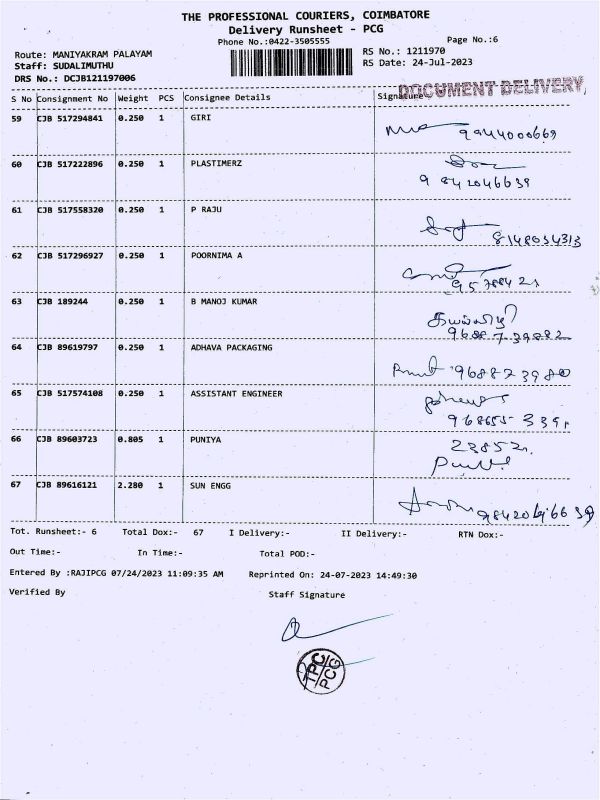 THE PROFESSIONAL COURIERS, COIMBATORE
Delivery Runsheet - PCG
Phone No.:0422-3505555 Page No.:6
Route: MANIYAKRAM PALAYAM RS No.: 1211970
Staff: SUDALIMUTHU RS Date: 24-Jul-2023
DRS No.: DCJB121197006
DOCUMENT DELIVERY
S No Consignment No Weight PCS Consignee Details Signature
59 CJB 517294841 0.250 1 GIRI
9944000669
60 CJB 517222896 0.250 1 PLASTIMERZ
9842046639
61 CJB 517558320 0.250 1 P RAJU
8148034313
62 CJB 517296927 0.250 1 POORNIMA A
63 CJB 189244 0.250 1 B MANOJ KUMAR
9688739882
64 CJB 89619797 0.250 1 ADHAVA PACKAGING
968873980
65 CJB 517574108 0.250 1 ASSISTANT ENGINEER
66 CJB 89603723 0.805 1 PUNIYA
67 CJB 89616121 2.280 1 SUN ENGG
Tot. Runsheet:- 6 Total Dox:- 67 I Delivery:- II Delivery:- RTN Dox:-
Out Time:- In Time:- Total POD:-
Entered By :RAJIPCG 07/24/2023 11:09:35 AM Reprinted On: 24-07-2023 14:49:30
Verified By Staff Signature
TPC
PCG